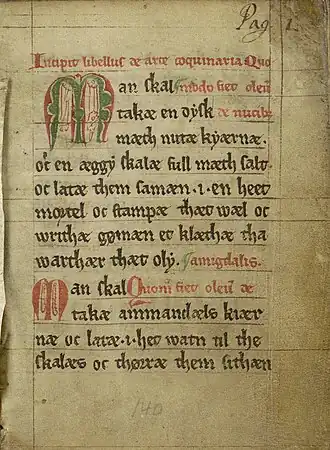 Pag. 1.
Incipit libellus de arte coquinaria Quo
Man skal modo fiet oleū
takæ en dysk de nucibꝫ
mæth nutæ kyærnæ.
oc en æggy skalæ full mæth salt
oc latæ them samæn .i. en heet
mortel oc stampæ thæt wæl oc
writhæ gømæn et klæthæ tha
warthær thæt oly. amigdalis.
Man skal Quom̄ fiet oleū de
takæ ammandæls kiær
næ oc latæ .i. het watn til the
skalæs oc thørræ them sithæn
140